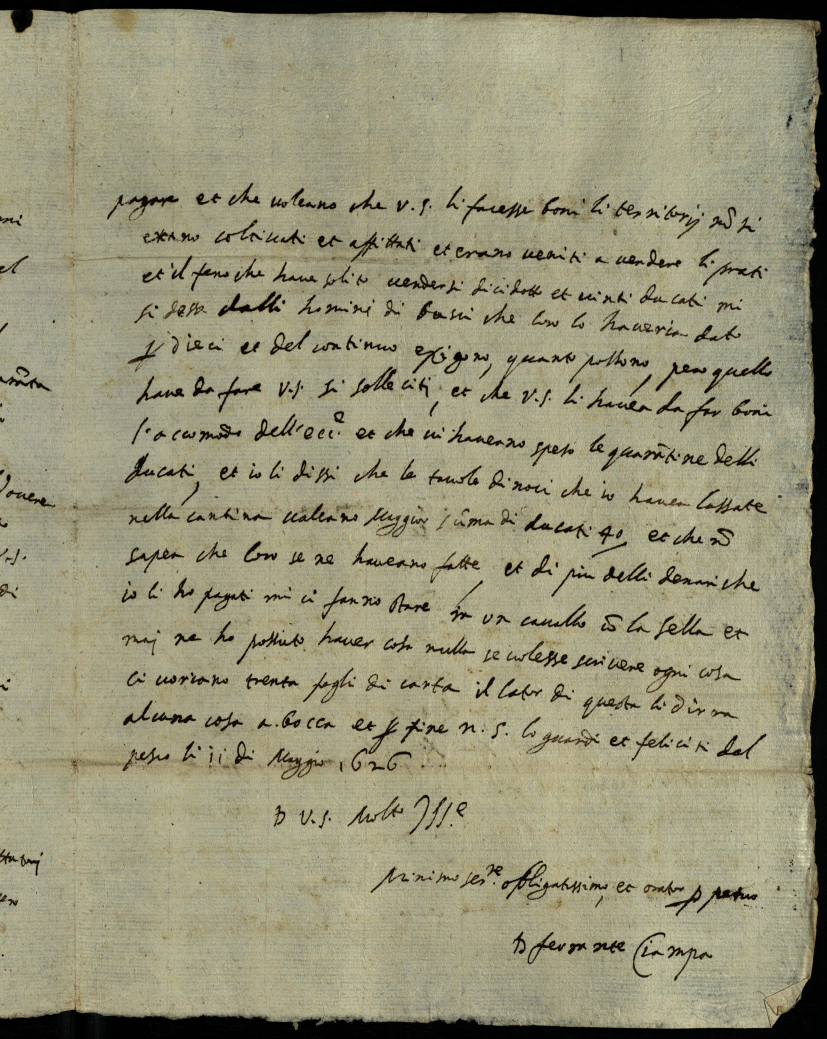 pagare et che voleano che v.s. li facesse boni li territorij nō si
erano coltivati et affittati et erano veniti a vendere li prati
et il feno che have solito vendersi dicidotto et vinti ducati mi
si desse dalli homini di che loro lo haveria dato
p dieci et del continuo exigono, quanto possono, pero quello
have da fare v.s. si solleciti, et che v.s. li havea da far boni
l'accomodo dell'ecc.ᵃ et che vi haveano speso le quarātine delli
ducati, et io li dissi che le tavole di noci che io havea lassate
nella cantina valeano maggior sūma di ducati 40, et che nō
sapea che loro se ne haveano fatte et di piu delli denari che
io li ho pagati mi ci fanno stare un cavallo cō la sella et
mai ne ho possuto haver cosa nulla se volesse scrivere ogni cosa
ci voriano trenta fogli di carta il lator di questa li dirra
alcuna cosa a bocca et p fine n.s. lo guardi et feliciti dal
li 11 di Maggio 1626
D v.s. Molto Ill.e
Minimo ser.re obligatissimo, et orator p petuo
D ferrante Ciampa
ni
el
arāta
dovere
v.s.
di